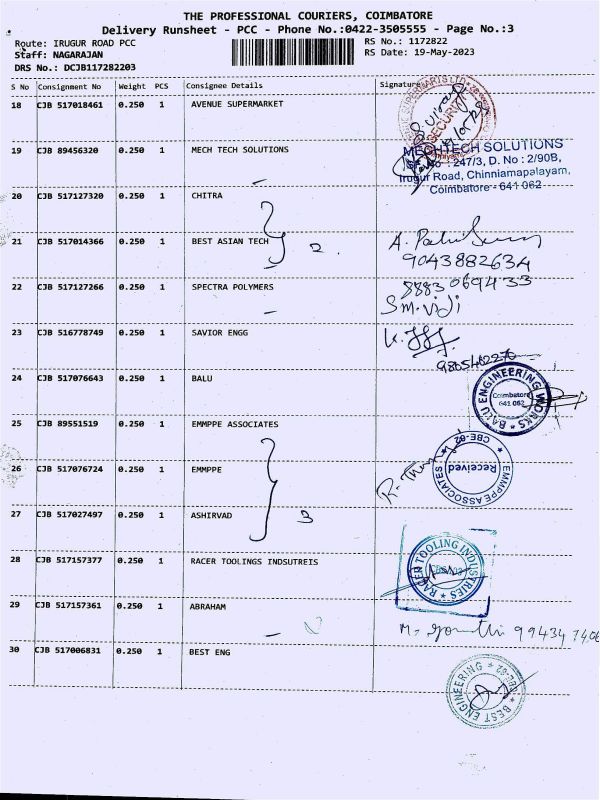 THE PROFESSIONAL COURIERS, COIMBATORE
Delivery Runsheet - PCC - Phone No.:0422-3505555 - Page No.:3
Route: IRUGUR ROAD PCC
RS No.: 1172822
Staff: NAGARAJAN
RS Date: 19-May-2023
DRS No.: DCJB117282203
S No Consignment No Weight PCS Consignee Details Signature
18 CJB 517018461 0.250 1 AVENUE SUPERMARKET
SECURITY
19 CJB 89456320 0.250 1 MECH TECH SOLUTIONS
MECHTECH SOLUTIONS
No : 247/3, D. No : 2/90B,
Irugur Road, Chinniamapalayam,
Coimbatore - 641 062
20 CJB 517127320 0.250 1 CHITRA
21 CJB 517014366 0.250 1 BEST ASIAN TECH
2.
9043882634
22 CJB 517127266 0.250 1 SPECTRA POLYMERS
8883069433
Sm.vidi
23 CJB 516778749 0.250 1 SAVIOR ENGG
24 CJB 517076643 0.250 1 BALU
BALU ENGINEERING WORKS
Coimbatore
641 062
25 CJB 89551519 0.250 1 EMMPPE ASSOCIATES
26 CJB 517076724 0.250 1 EMMPPE
EMMPPE ASSOCIATES
CBE-62
Received
27 CJB 517027497 0.250 1 ASHIRVAD
3
28 CJB 517157377 0.250 1 RACER TOOLINGS INDSUTREIS
RACER TOOLING INDUSTRIES
29 CJB 517157361 0.250 1 ABRAHAM
99434 7406
30 CJB 517006831 0.250 1 BEST ENG
BEST ENGINEERING
CBE-62